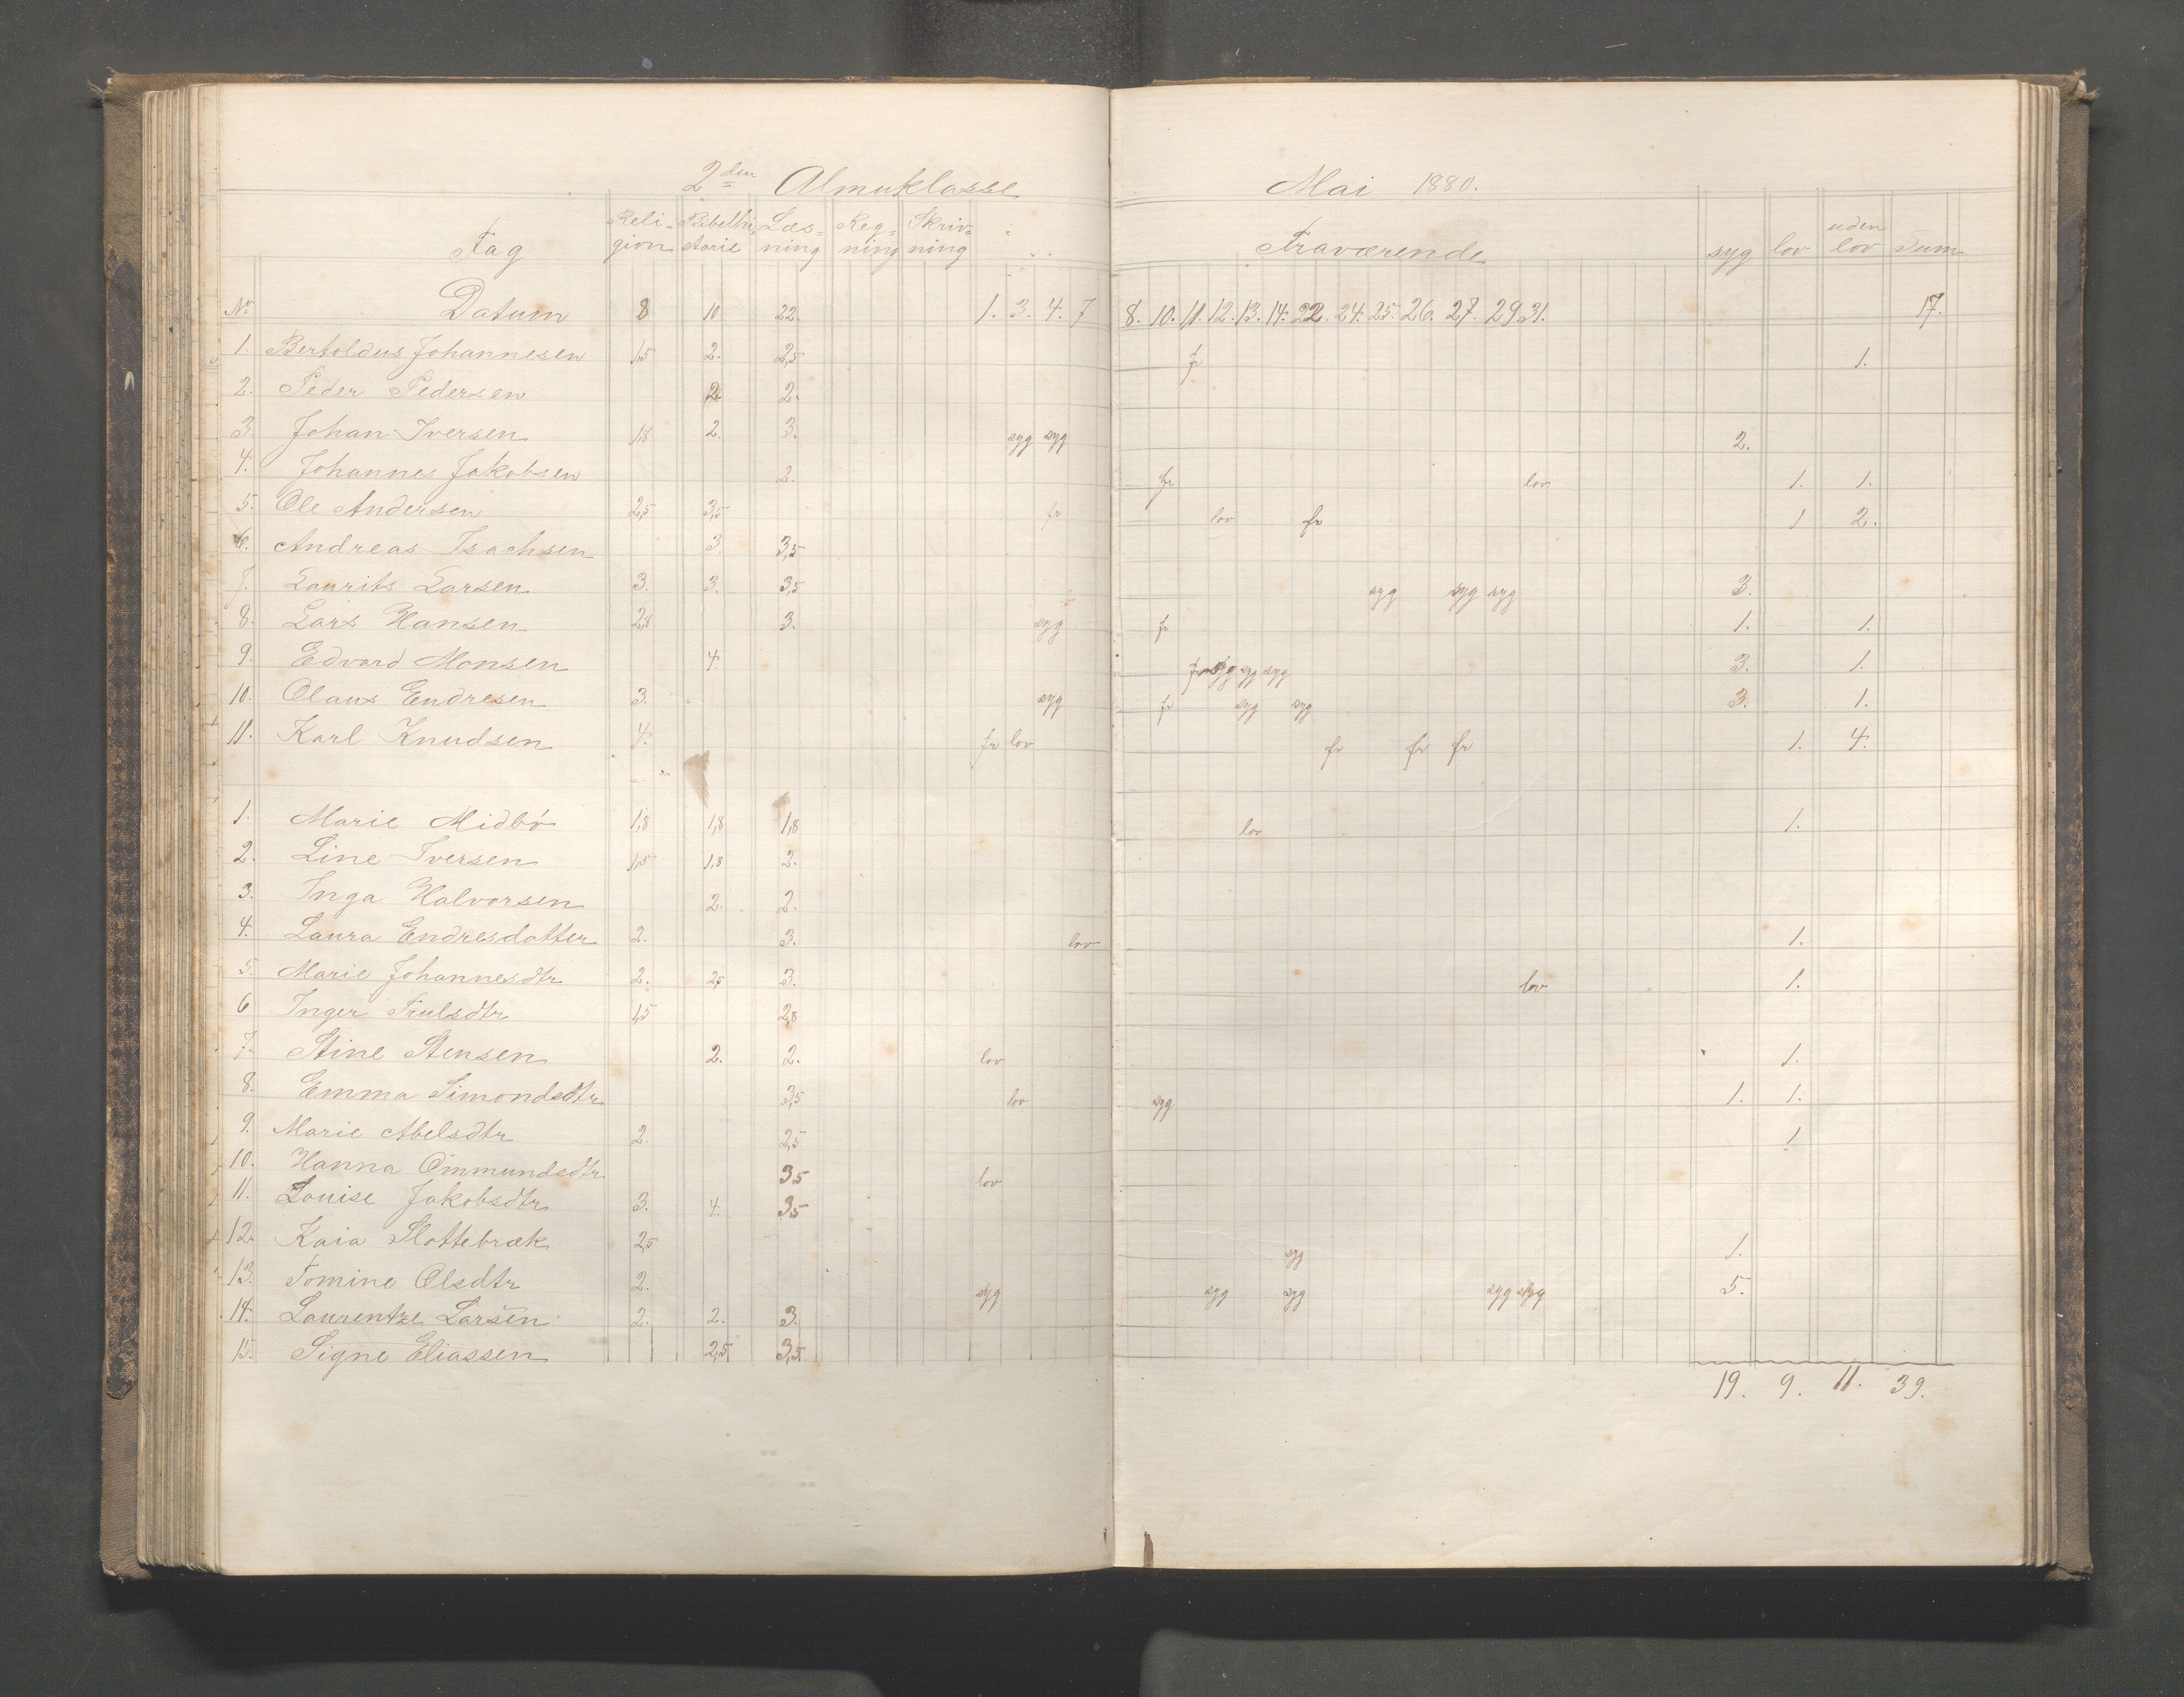 2den Almuklasse Mai 1880.
Fag Religion Bibelhistorie Læsning Regning Skrivning Fraværende syg lov uden lov Sum
No Datum 8 10 22. 1. 3. 4. 7 8. 10. 11. 12. 13. 14. 22. 24. 25. 26. 27. 29. 31. 17.
1. Bertoldus Johannesen 1,5 2. 2,5 fr 1.
2. Peder Pedersen 2 2.
3. Johan Iversen 1,8 2. 3. syg syg 2.
4. Johannes Jakobsen 2. fr lov 1. 1.
5. Ole Andersen 2,5 3,5 fr lov fr 1 2.
6. Andreas Isachsen 3. 3,5
7. Laurits Larsen 3. 3. 3,5 syg syg syg 3.
8. Lars Hansen 2,8 3. syg fr 1. 1.
9. Edvard Monsen 4. fr syg syg syg 3. 1.
10. Olaus Endresen 3. syg fr syg syg 3. 1.
11. Karl Knudsen 4. fr lov fr fr fr 1. 4.
1. Marie Midbö 1,8 1,8 1,8 lov 1.
2. Line Iversen 1,5 1,8 2.
3. Inga Halvorsen 2. 2.
4. Laura Endresdotter 2. 3. lov 1.
5. Marie Johannesdtr 2. 2,5 3. lov 1.
6 Inger Trulsdtr 1,5 2,8
7. Stine Stensen 2. 2. lov 1.
8. Emma Simondsdtr 3,5 lov syg 1. 1.
9. Marie Abelsdtr 2. 2,5 1.
10. Hanna Ommundsdtr 3,5 lov
11. Louise Jakobsdtr 3. 4. 3,5
12. Kaia Slottebræk 2,5 syg 1.
13. Tomine Olsdtr 2. syg syg syg syg syg 5.
14. Laurentze Larsen 2. 2. 3.
15. Signe Eliassen 2,5 3,5
19. 9. 11. 39.